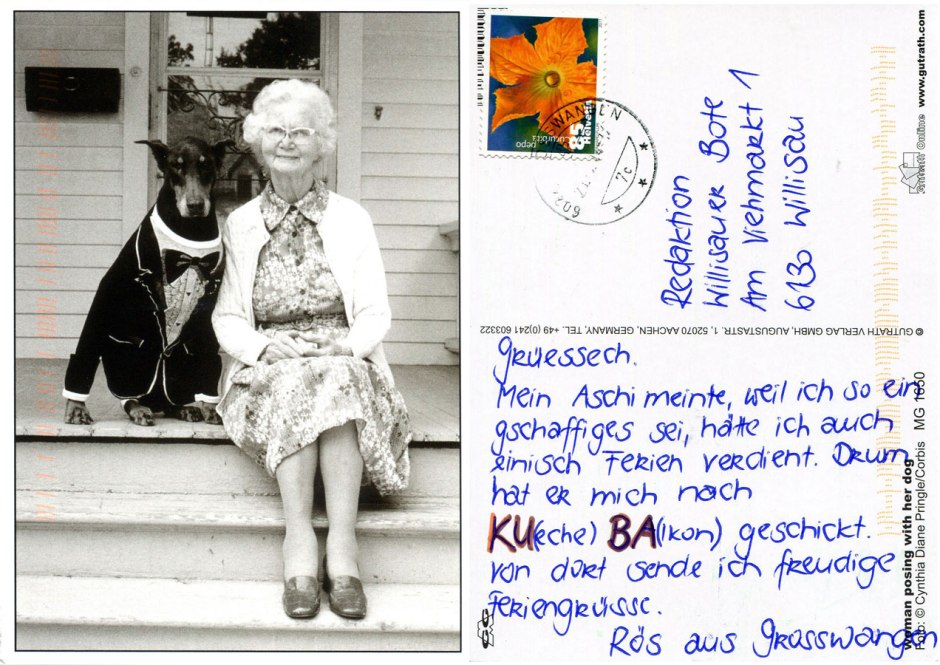 pepo
Cucurbita
85
Helvetia
7c
602
Redaktion
Willisauer Bote
Am Viehmarkt 1
6130 Willisau
© GUTRATH VERLAG GMBH, AUGUSTASTR. 1, 52070 AACHEN, GERMANY, TEL. +49 (0)241 603322
Grüessech.
Mein Aschi meinte, weil ich so ein
gschaffiges sei, hätte ich auch
einisch Ferien verdient. Drum
hat er mich nach
KU(eche) BA(lkon) geschickt.
Von dort sende ich freudige
Feriengrüsse.
Rös aus Grosswangen
woman posing with her dog
Foto: © Cynthia Diane Pringle/Corbis MG 1650
Gutrath Online www.gutrath.com